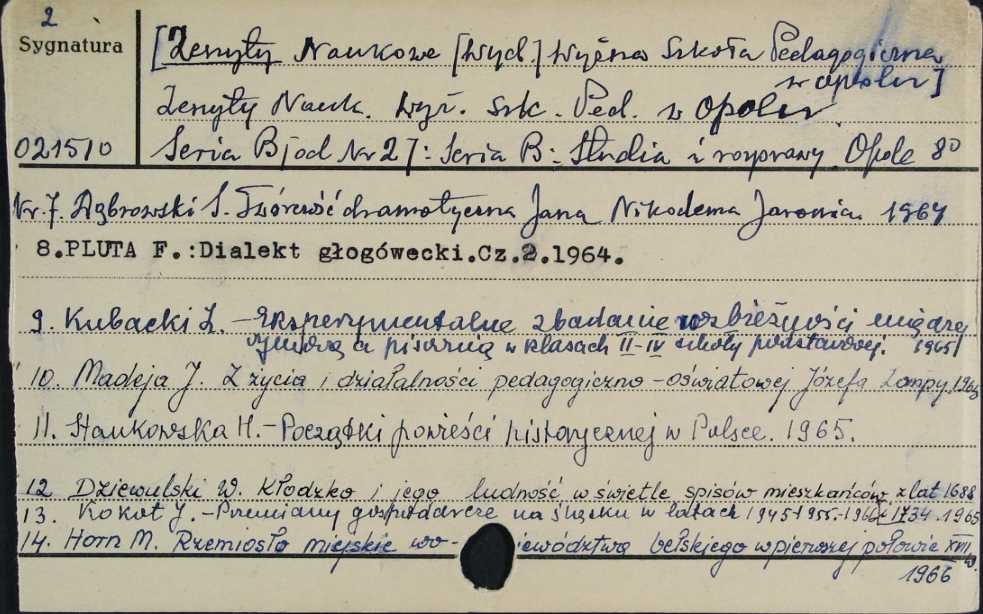 2
Sygnatura
[Zeszyty Naukowe [Wyd.] Wyższa Szkoła Pedagogiczna
w Opolu]
Zeszyty Nauk. Wyż. Szk. Ped. w Opolu
021510
Seria B [od Nr 27: Seria B: Studia i rozprawy. Opole 8°
Nr. 7. Dąbrowski S. Twórczość dramatyczna Jana Nikodema Jaronia. 1964
8.PLUTA F.:Dialekt głogówecki.Cz.2.1964.
9. Kubacki Z. - Eksperymentalne zbadanie rozbieżności między
wymową a pisownią w klasach II-IV szkoły podstawowej. 1965
10. Madeja J. Z życia i działalności pedagogiczno-oświatowej Józefa Lompy. 1965
11. Stankowska H. - Początki powieści historycznej w Polsce. 1965.
12 Dziewulski W. Kłodzko i jego ludność w świetle spisów mieszkańców z lat 1688
i 1734. 1965
13. Kokot J. - Przemiany gospodarcze na Śląsku w latach 1945-1955.-1966
14. Horn M. Rzemiosło miejskie wo-iewództwa bełskiego w pierwszej połowie XVII w.
1966